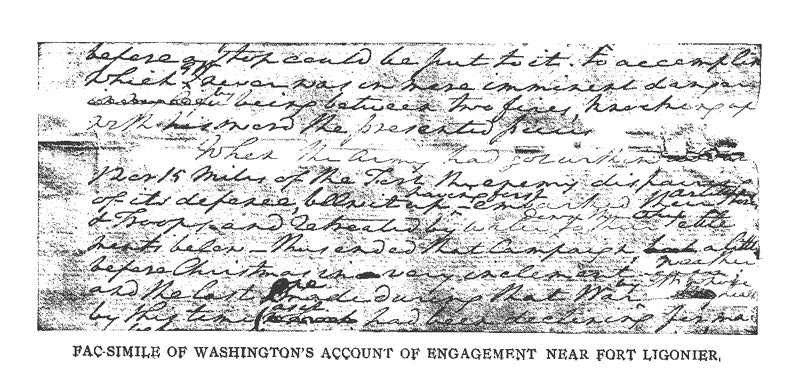 before any stop could be put to it. to accomplish
which I never was in more imminent danger
by being between two fires, knocking up
with his sword the presented pieces
When the Army had got within about
12 or 15 Miles of the Fort the enemy dispairing
of its defence, blew it up - having first embarked their Artillery
& Troops and retreated by water down the Ohio to their settle
ments below - thus ended that Campaign, a little
before Christmas in very inclement weather
and the last one made during that War
by this time had been declining
FAC-SIMILE OF WASHINGTON'S ACCOUNT OF ENGAGEMENT NEAR FORT LIGONIER.